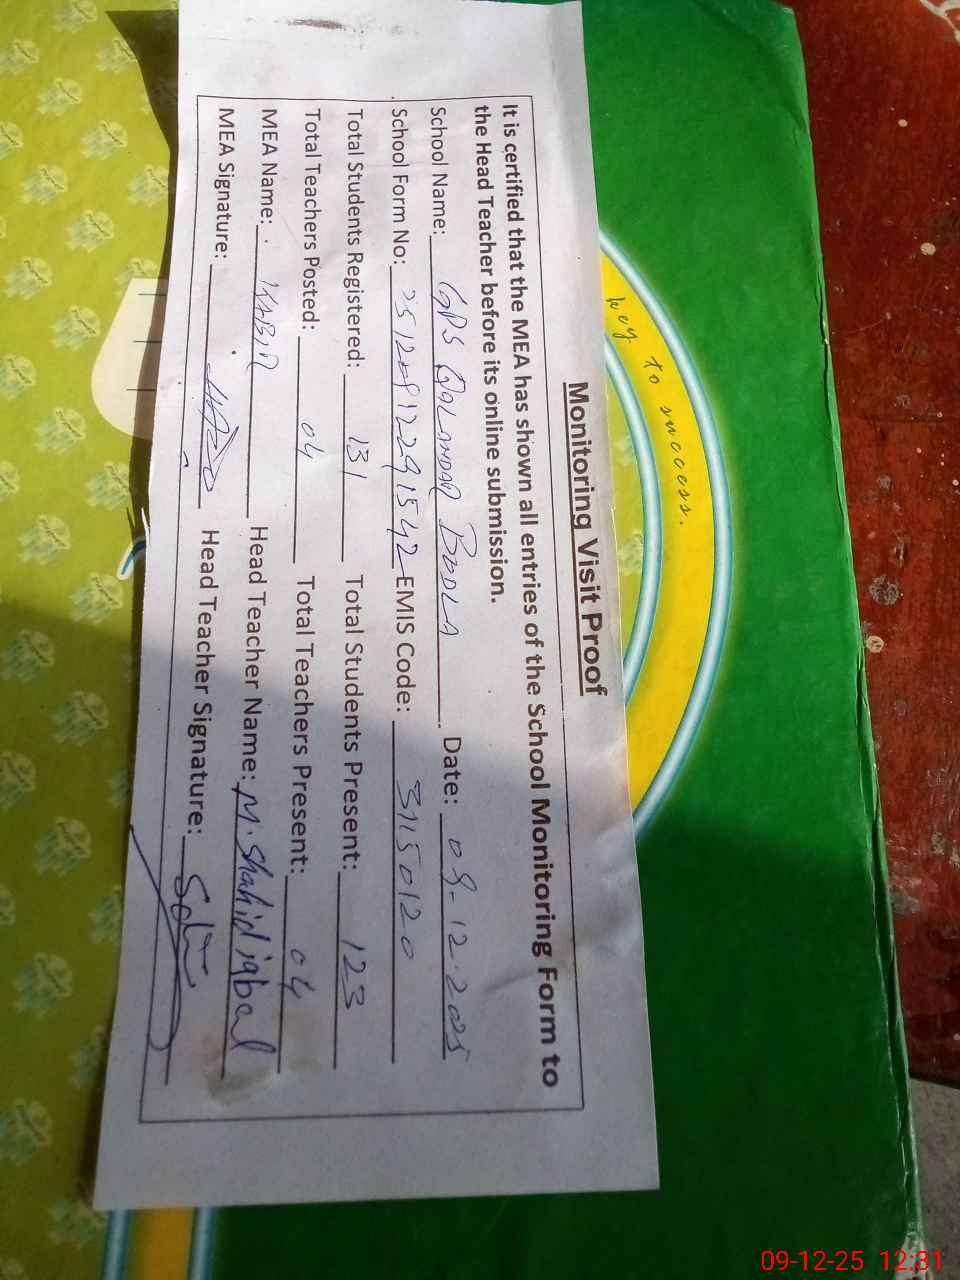 Monitoring Visit Proof
It is certified that the MEA has shown all entries of the School Monitoring Form to
the Head Teacher before its online submission.
School Name: GPS QALANDAR BODLA Date: 09-12-2025
School Form No: 25120912291542 EMIS Code: 31150120
Total Students Registered: 131 Total Students Present: 123
Total Teachers Posted: 04 Total Teachers Present: 04
MEA Name: KABIR Head Teacher Name: M. Shahid iqbal
MEA Signature: Head Teacher Signature:
key to success.
09-12-25 12:31